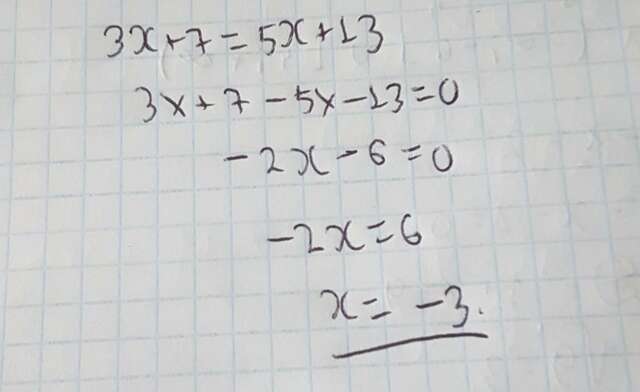 3x+7=5x+13
3x+7-5x-13=0
-2x-6=0
-2x=6
x=-3.